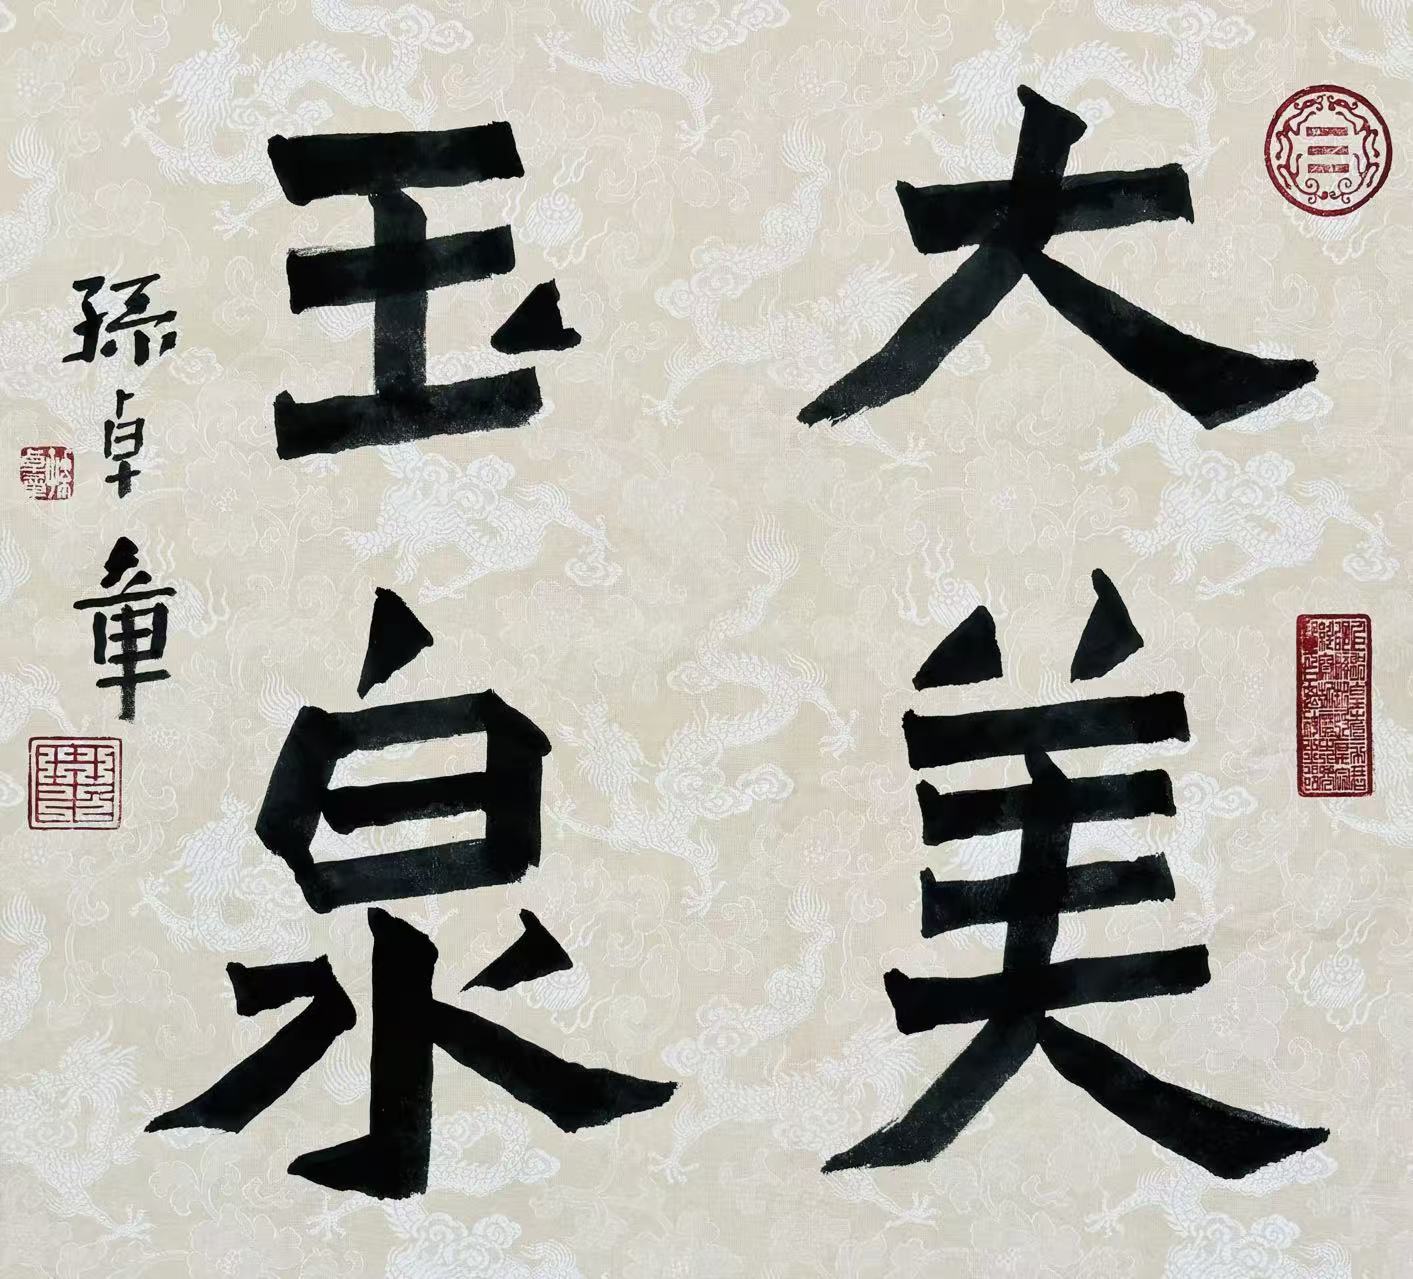 大美
玉泉
孫卓章